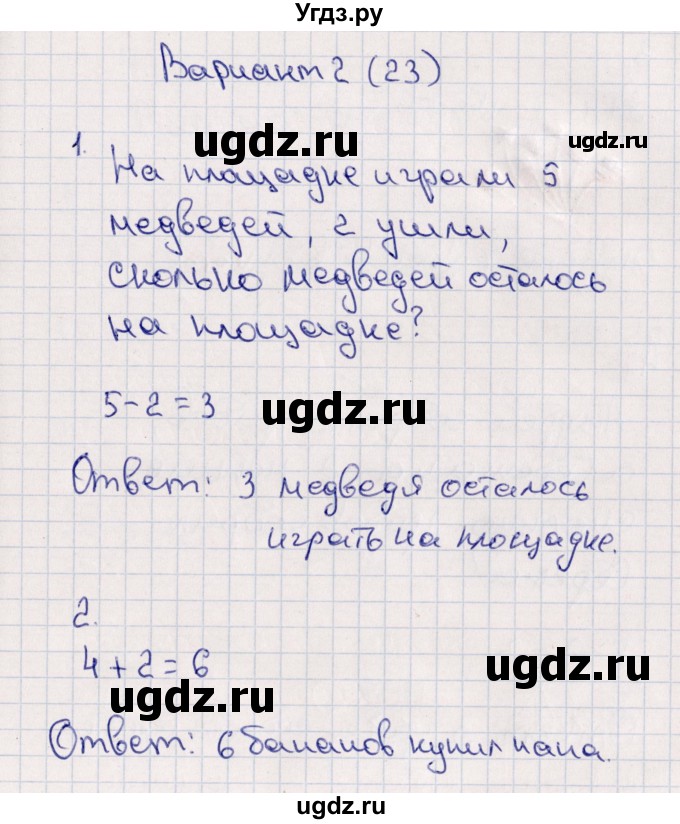 Угдз.ру
Вариант 2 (23)
ugdz.ru
ugdz.ru
1.
На площадке играли 5
медведей, 2 ушли,
сколько медведей осталось
на площадке?
5-2=3
ugdz.ru
ugdz.ru
Ответ: 3 медведя осталось
играть на площадке.
2.
4+2=6
ugdz.ru
ugdz.ru
Ответ: 6 бананов купил папа.
ugdz.ru